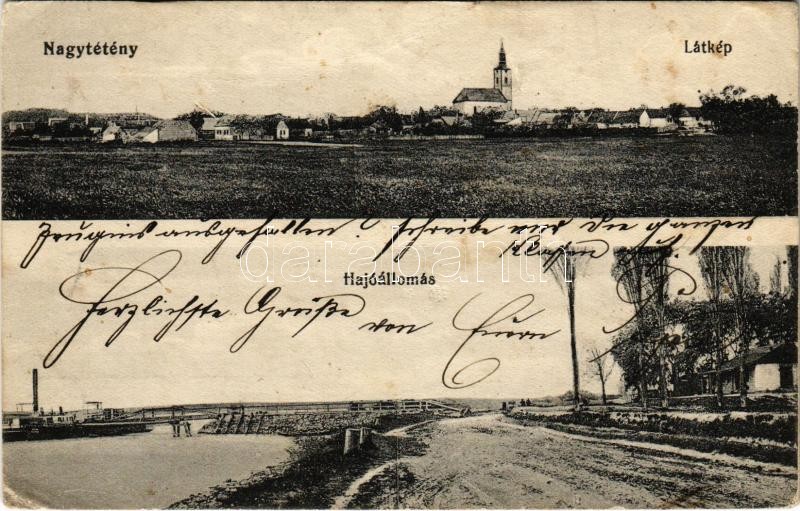 Nagytétény
Látkép
Zeugnis ausgefallen? schreibe mir die ganzen
Klassen auf.
Hajóállomás
Herzlichste Grüße von Euern
darabanth